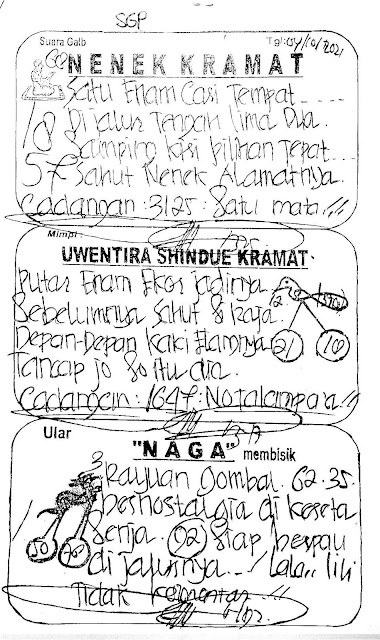 SGP
Suara Gaib
Tgl: 04/10/2021
NENEK KRAMAT
Satu Enam Casi Tempat
18 Di jalur Tengah lima Dua.
Samping kisi pilihan Tepat
57 Sahut Nenek Alamatnya.
Cadangan : 3125 : Satu mata !!!
Mimpi
UWENTIRA SHINDUE KRAMAT
Putar Enam Ekor jadinya
12
Sebelumnya Sahut 8 kaja
Depan-Depan kaki
21 10
Tancap jo 80 itu dia
Cadangan : 1647 :
Ular
"NAGA" membisik
3 Rayuan Gombal. 62-35.
bernostalgia di
Senja. 02 Siap
50 78
di jalurnya
Tidak komentar !!!